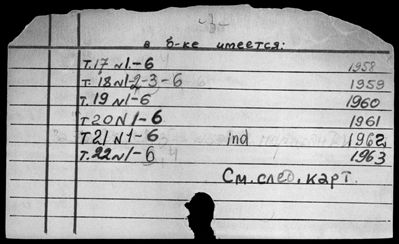 -3-
в б-ке имеется:
Т.17 №1-6 1958
Т. 18 №1-2-3-6 1959
Т. 19 №1-6 1960
Т 20 №1-6 1961
Т 21 №1-6 ind 1962
Т. 22 №1-6 1963
См. след. карт.